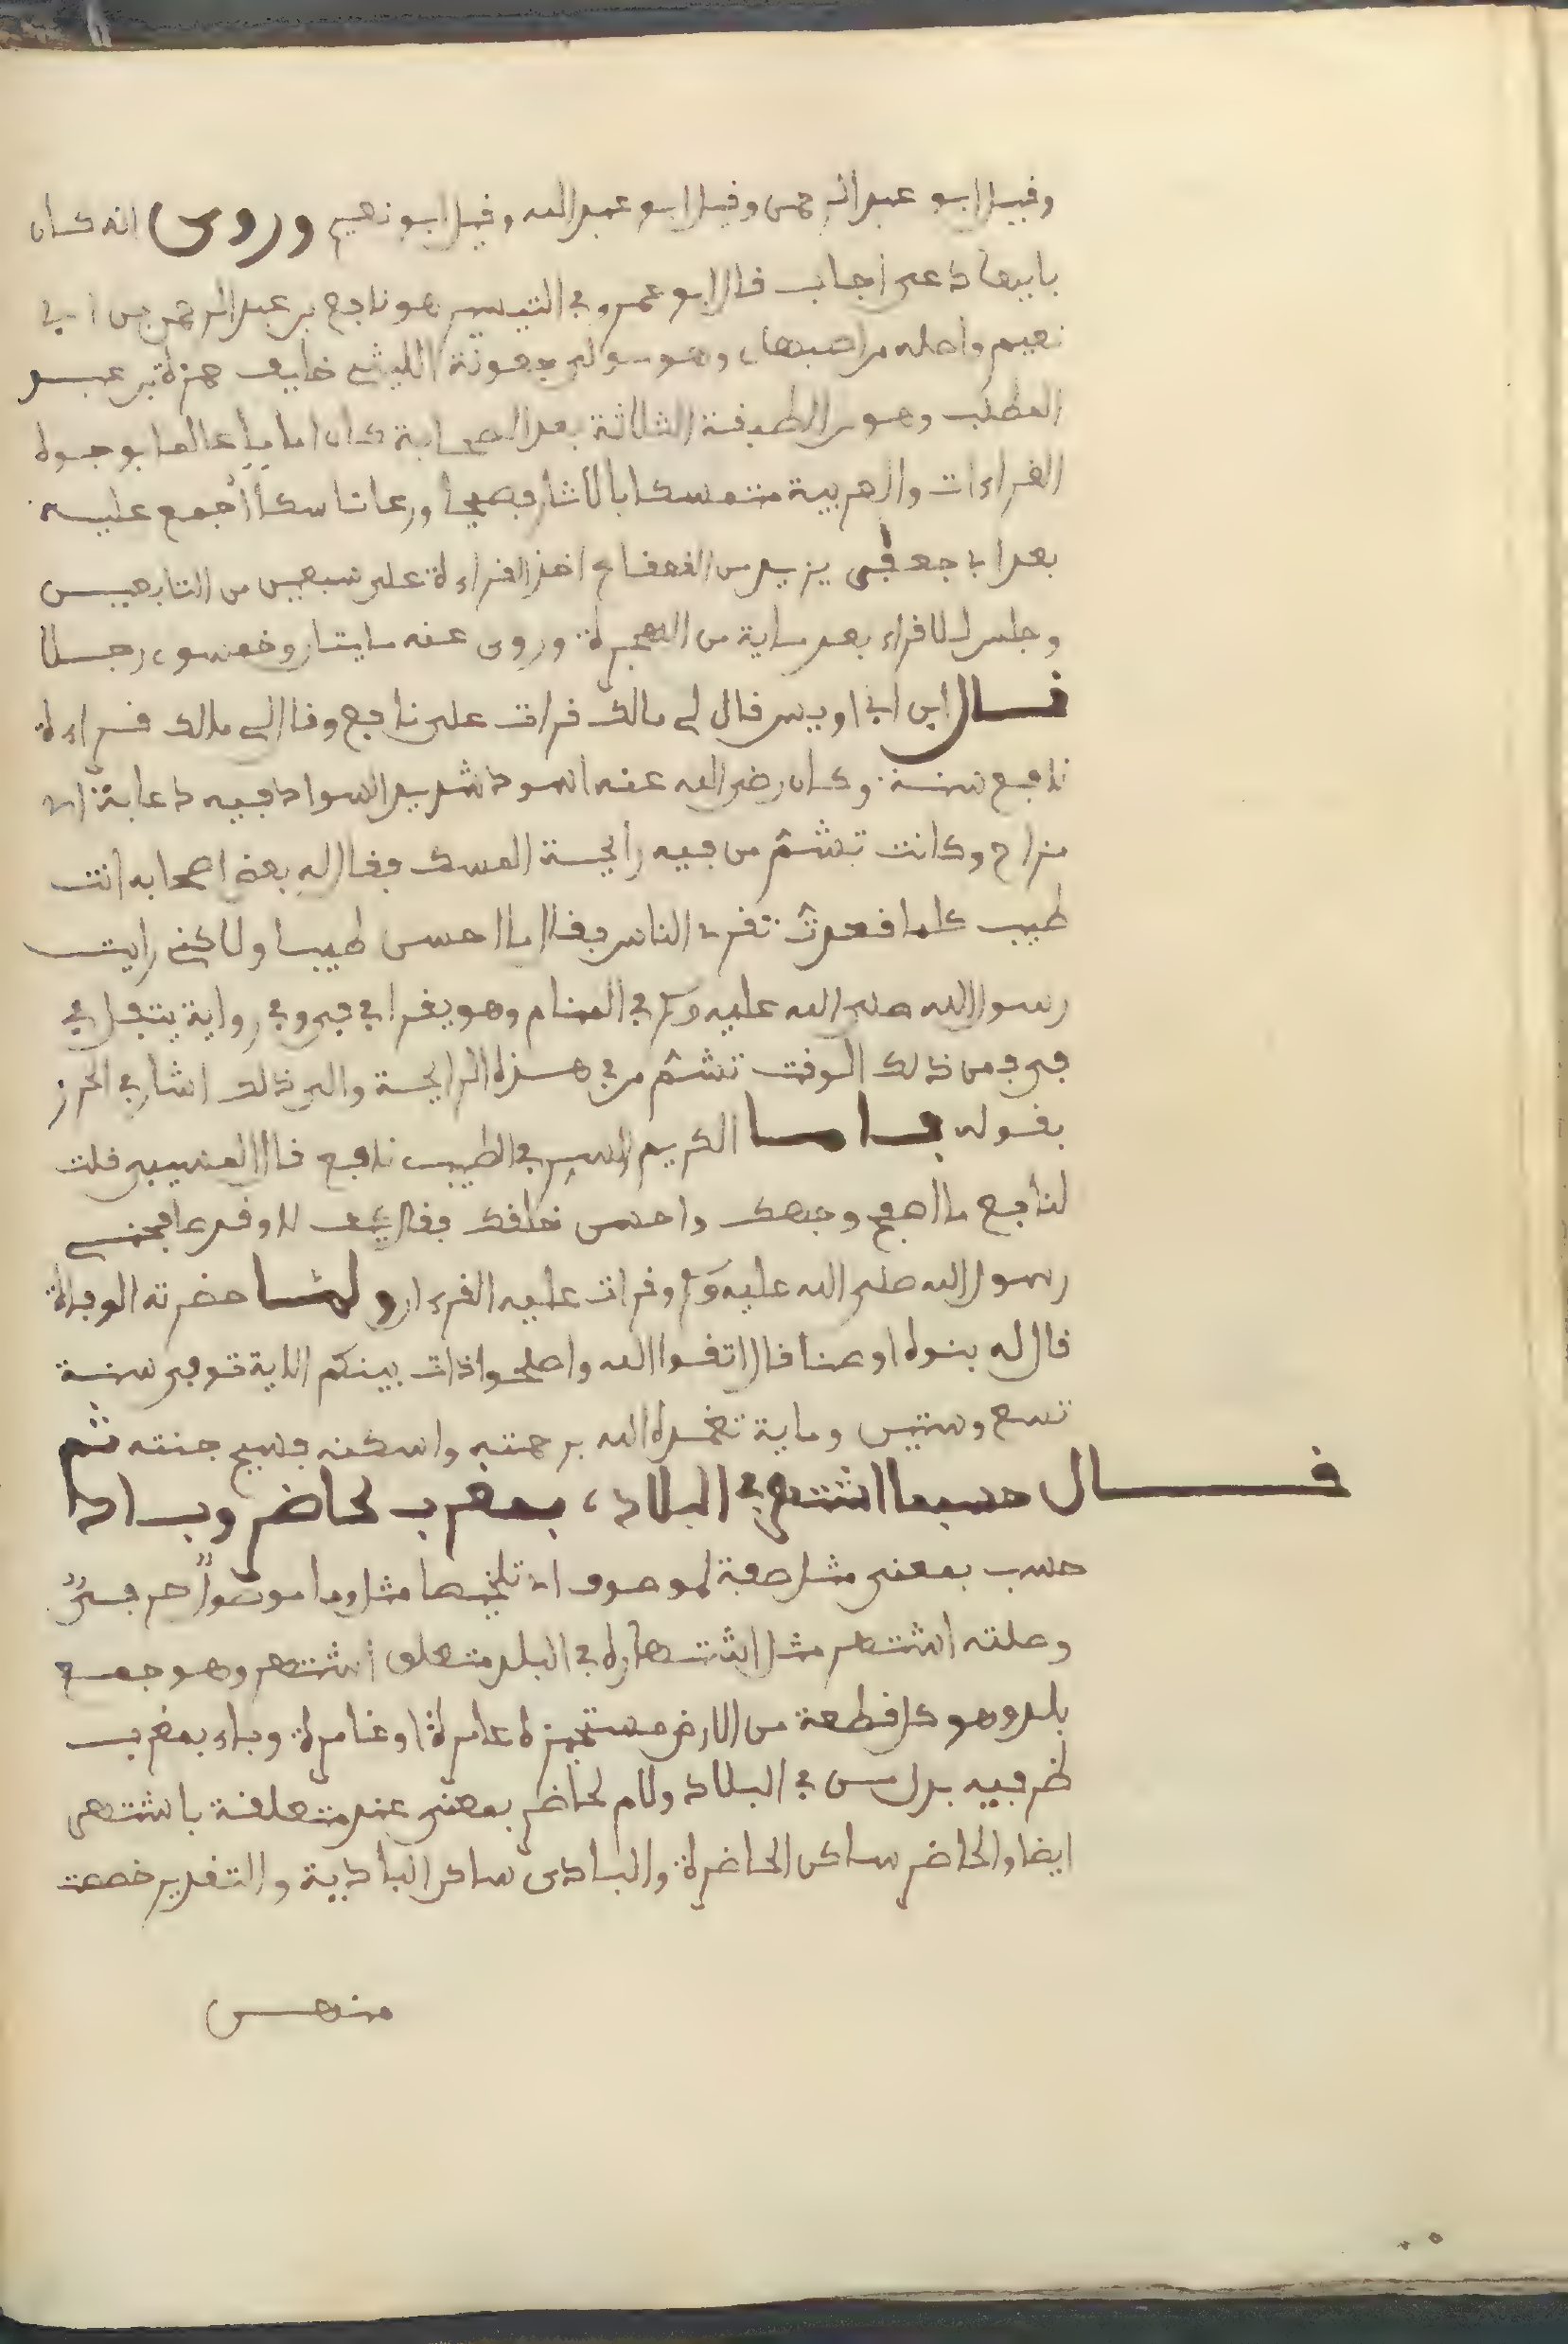 وقيل ابو عبد الرحمن وقيل ابو عبد الله وقيل ابو نعيم وروى انه كان
بايها دعى اجاب قال ابو عمرو في التيسير هو نافع بن عبد الرحمن بن ابي
نعيم واصله من اصبهان وهو مولى جعونة الليثي حليف حمزة بن عبد
المطلب وهو من الطبقة الثلاثة بعد الصحابة كان اماما عالما بوجوه
القراءات والعربية متمسكا بالاثار فصيحا ورعا ناسكا أجمع عليه
بعد ابا جعفر يزيد بن القعقاع اخذ القراءة على سبعين من التابعين
وجلس للاقراء بعد ماية من الهجرة وروى عنه مايتان وخمسون رجلا
قال ابن ابي اويس قال لي مالك قرات على نافع وقال لي مالك قراءة
نافع سنة وكان رضي الله عنه اسود شديد السواد فيه دعابة اي
مزاح وكانت تشم من فيه رايحة المسك فقال له بعض اصحابه انت
طيب كلما قعدت تقرئ الناس فقال ما احسن طيبا ولاكني رايت
رسول الله صلى الله عليه وسلم في المنام وهو يقرا في في وفي رواية يتفل في
في فمن ذلك الوقت تشم من في هذه الرايحة والى ذلك اشار في الحرز
بقوله فاما الكريم السر في الطيب نافع قال المسيبي قلت
لنافع ما اصبح وجهك واحسن خلقك فقال كيف لا وقد صافحني
رسول الله صلى الله عليه وسلم وقرات عليه القرءان ولما حضرته الوفاة
قال له بنوه اوصنا قال اتقوا الله واصلحوا ذات بينكم الاية توفي سنة
تسع وستين وماية تغمده الله برحمته واسكنه فسيح جنته ثم
قال حسبما اشتهر في البلاد، بمغرب لحاضر وباد
حسب بمعنى مثل صفة لموصوف اي تلخيصا مثل وما موصول حرفي
وصلته اشتهر مثل اشتهاره في البلد متعلق اشتهر وهو جمع
بلد وهو كل قطعة من الارض مستحيزة عامرة او غامرة وباء بمغرب
ظرفيه بدل من في البلاد ولام لحاضر بمعنى عند متعلقة باشتهر
ايضا والحاضر ساكن الحاضرة والبادي ساكن البادية والتقدير خصصت